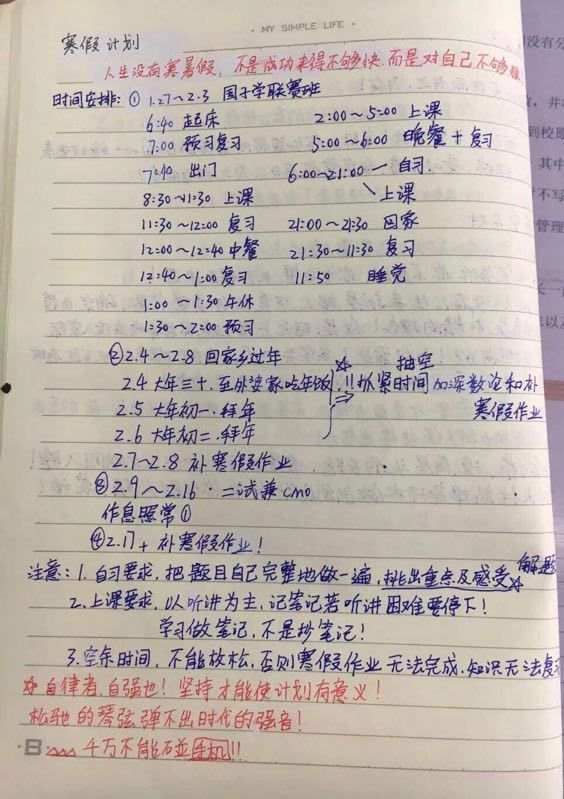 · MY SIMPLE LIFE ·
寒假计划
人生没有寒暑假,不是成功来得不够快,而是对自己不够狠
时间安排: ① 1.27~2.3 国子学联赛班
6:40 起床 2:00~5:00 上课
7:00 预习复习 5:00~6:00 晚餐+复习
7:40 出门 6:00~21:00 自习.
8:30~11:30 上课 上课
11:30~12:00 复习 21:00~21:30 回家
12:00~12:40 中餐 21:30~11:30 复习
12:40~1:00 复习 11:50 睡觉
1:00~1:30 午休
1:30~2:00 预习
② 2.4~2.8 回家乡过年 抽空
2.4 大年三十.至外婆家吃年饭. !!抓紧时间加深数论和补
2.5 大年初一.拜年 寒假作业
2.6 大年初二.拜年
2.7~2.8 补寒假作业
③ 2.9~2.16 二试兼cmo
作息照常①
④ 2.17+ 补寒假作业!
注意: 1. 自习要求,把题目自己完整地做一遍,挑出重点及感受 解题
2. 上课要求,以听讲为主,记笔记若听讲困难要停下!
学习做笔记,不是抄笔记!
3. 空余时间,不能放松,否则寒假作业无法完成,知识无法复
☆ 自律者,自强也!坚持才能使计划有意义!
松驰的琴弦弹不出时代的强音!
千万不能碰手机!!
没有分
并
到校
其中
不写
管理